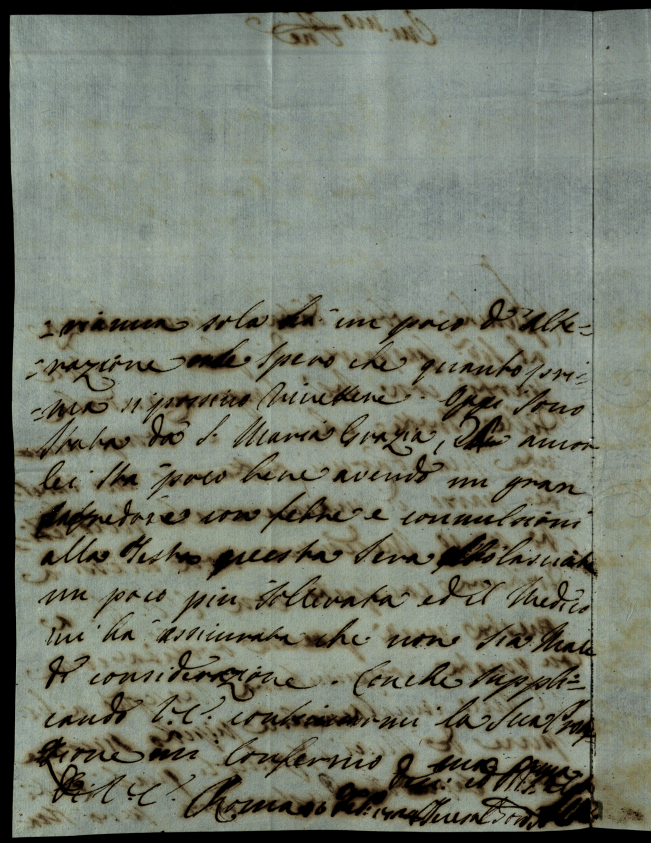 =rianna sola ha un poco d'alte=
=razione onde spero che quanto pri=
=ma si possino rivettere. Oggi sono
stata da S. Maria Grazia, che ancor
lei sta poco bene avendo un gran
rafredore con febre e convulsioni
alla testa questa sera l'ho lasciata
un poco più sollevata ed il Medico
mi ha assicurata che non sia male
di considerazione. Con che suppli=
cando V.E. continuarmi la sua
mi confermo
Di V.E.
Roma Teresa